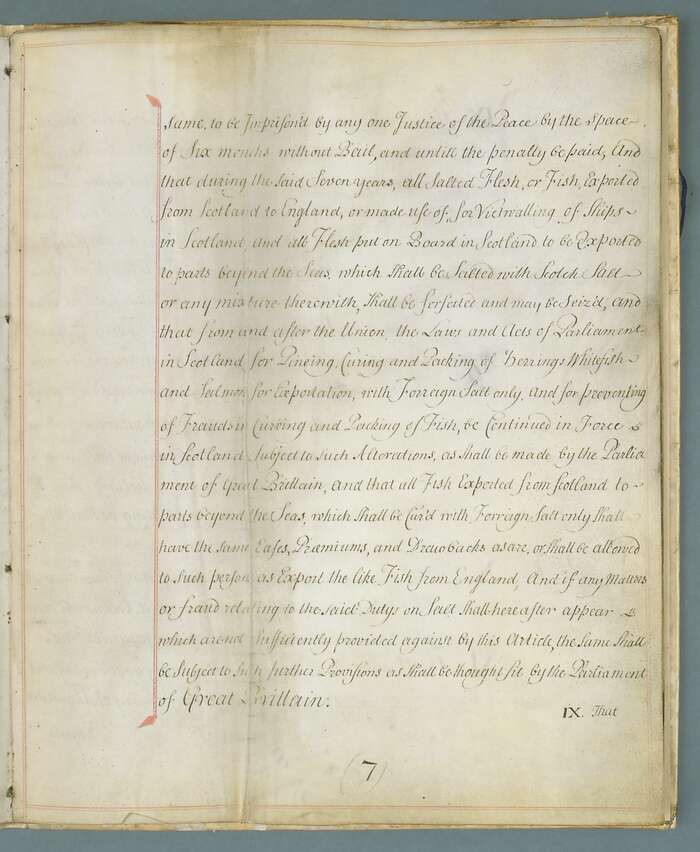 same, to be Imprison'd by any one Justice of the Peace by the space
of Six months without Beall, and untill the penalty be paid, And
that during the said Seven years, all Salted Flesh, or Fish, Exported
from Scotland to England, or made use of, for Victualling of Ships
in Scotland, and all Flesh put on Board in Scotland to be Exported
to parts beyond the Seas, which shall be Salted with Scotch Salt
or any mixture therewith, shall be forfeited and may be Seiz'd, and
that from and after the Union, the Laws and Acts of Parliament
in Scotland for Pineing, Curing and Packing of Herrings Whitefish
and Salmon for Exportation, with Forreign Salt only, and for preventing
of Frauds in Curing and Packing of Fish, be Continued in Force
in Scotland Subject to such Alterations, as shall be made by the Parlia
ment of Great Brittain, and that all Fish Exported from Scotland to
parts beyond the Seas, which shall be Cur'd with Forreign Salt only shall
have the same Eases, Præmiums, and Drawbacks as are, or shall be allowed
to such person as Export the like Fish from England, And if any Matters
or fraud relating to the said Dutys on Salt shall hereafter appear
which are not sufficiently provided against by this Article, the same shall
be Subject to such further Provisions as shall be thought fit by the Parliament
of Great Brittain:
IX. That
(7)